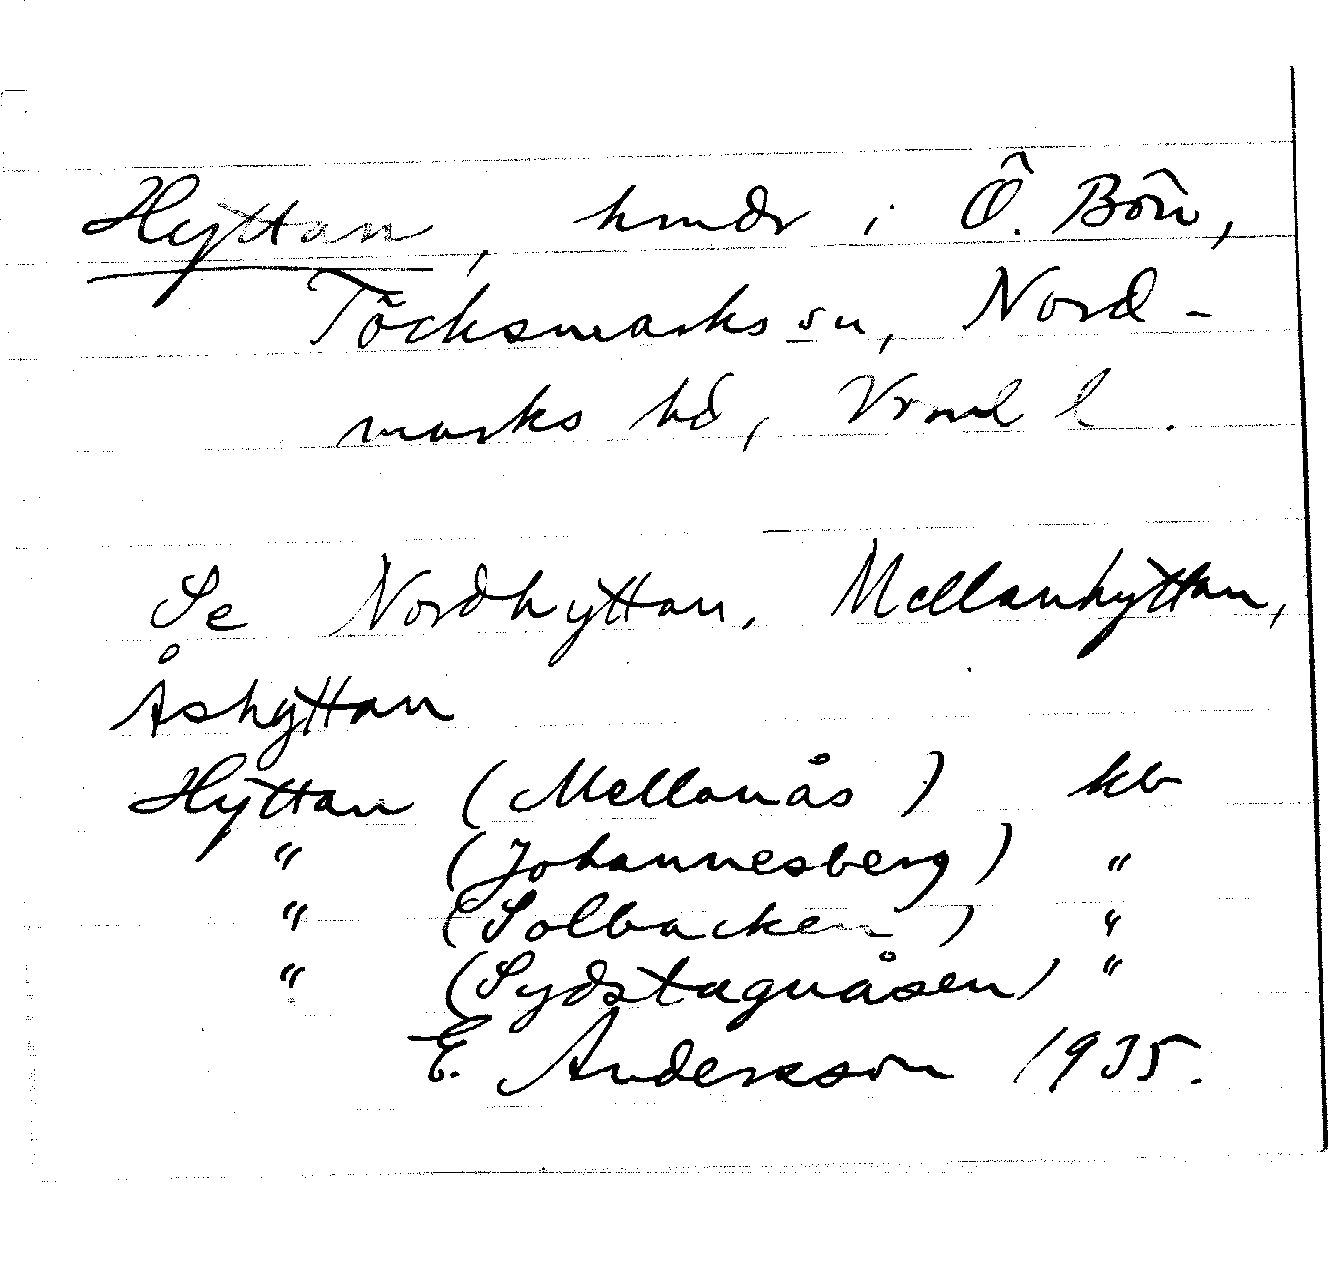 Hyttan, hmdr i Ö. Bön,
Töcksmarks sn, Nord-
marks hd, Vrml l.
Se Nordhyttan, Mellanhyttan,
Åshyttan
Hyttan (Mellanås) kb
" (Johannesberg) "
" (Solbacken) "
" (Sydstagnåsen) "
E. Andersson 1935.